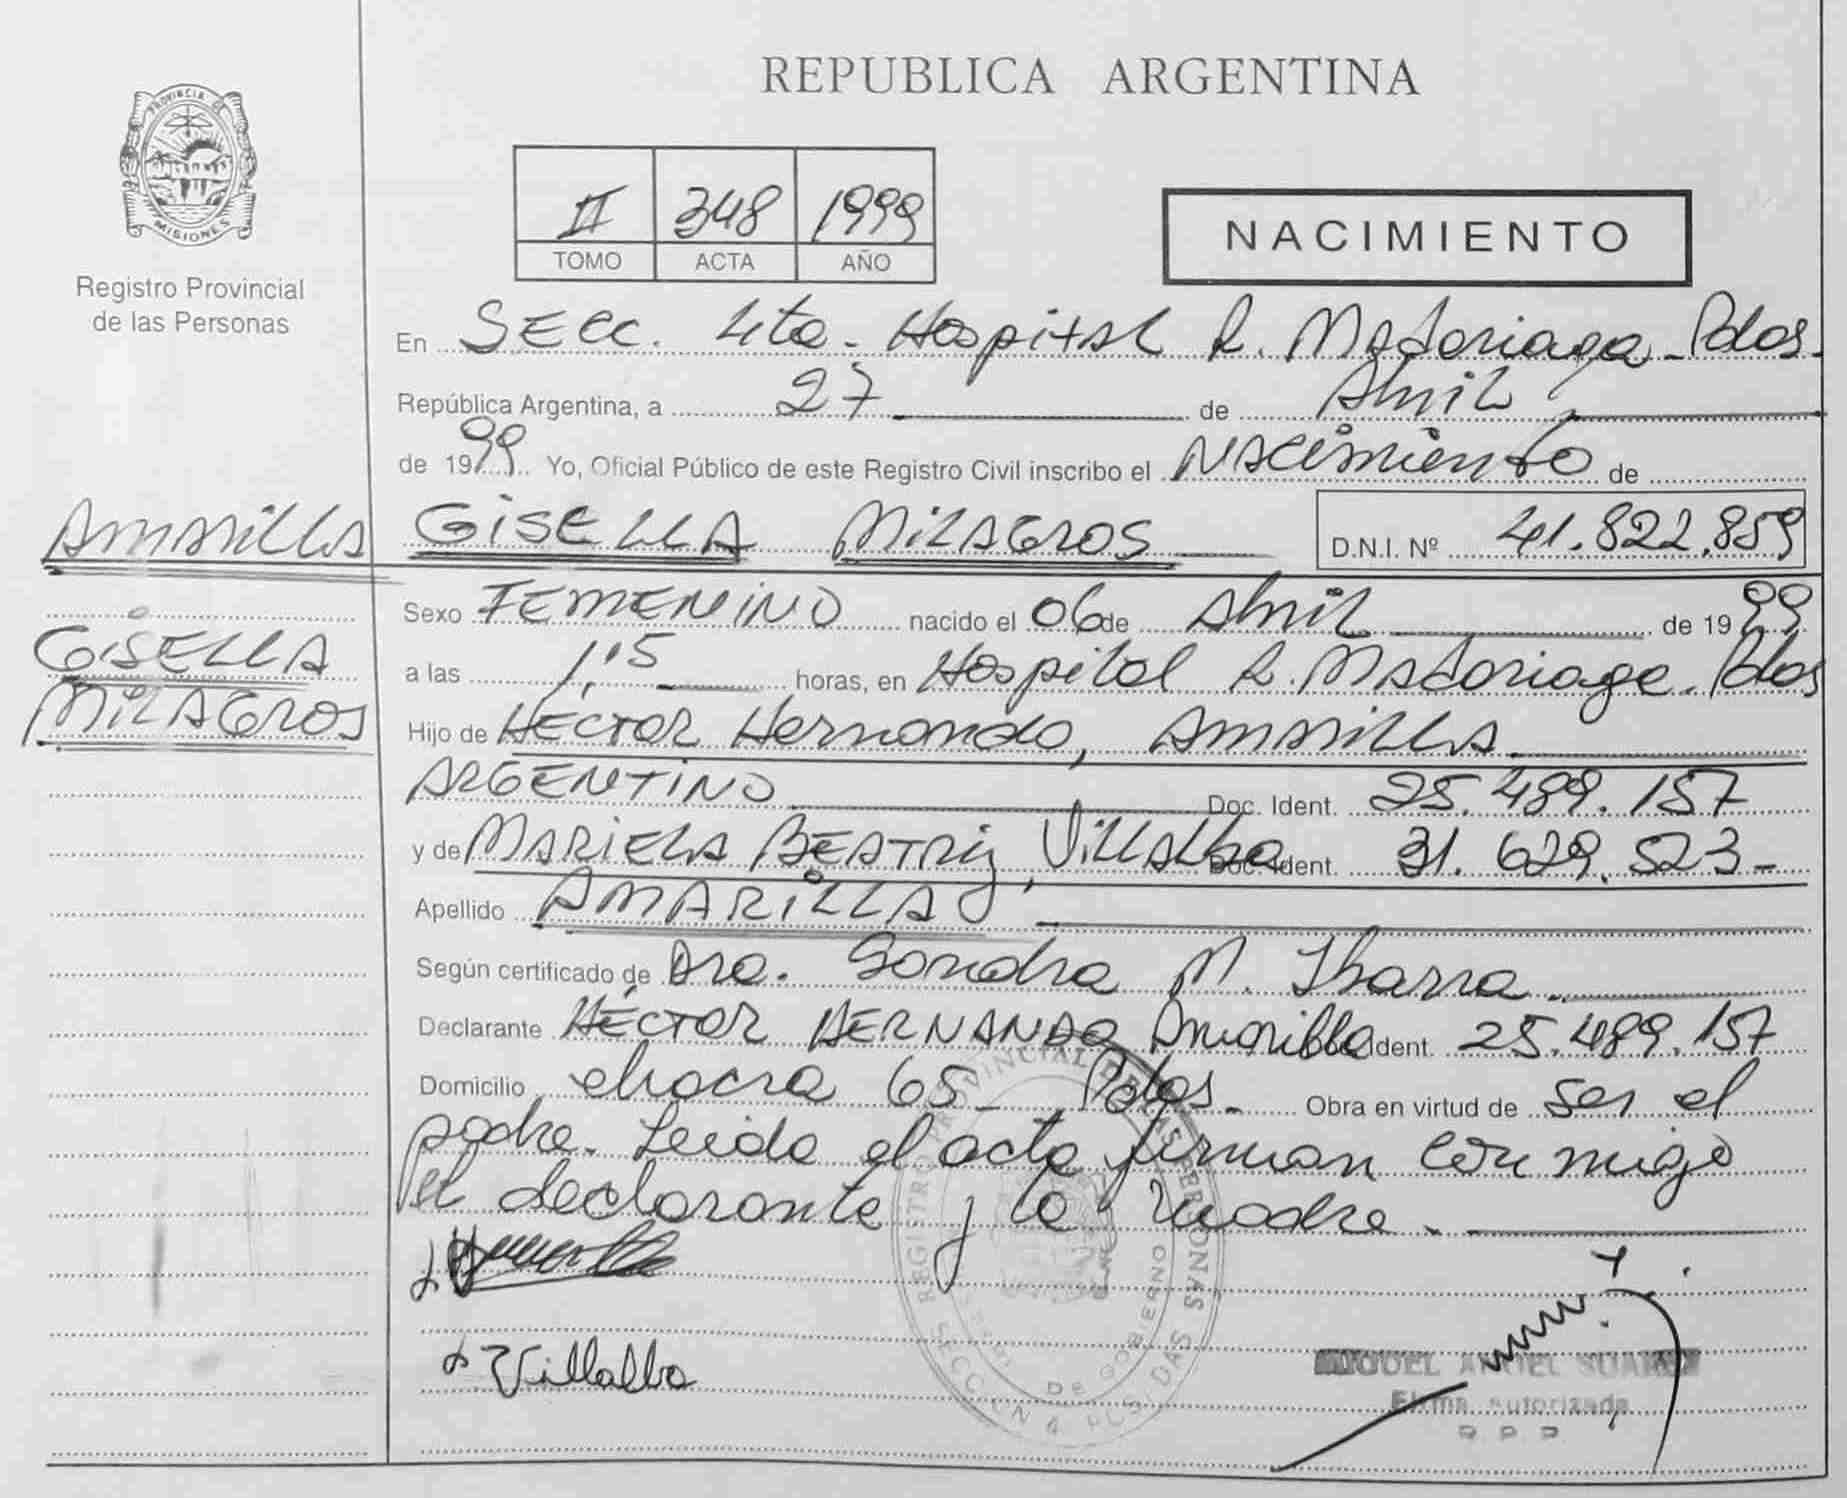 REPUBLICA ARGENTINA
PROVINCIA DE
MISIONES
Registro Provincial
de las Personas
II 348 1999
TOMO ACTA AÑO
NACIMIENTO
En Secc. 4ta. Hospital R. Madariaga - Pdas.
República Argentina, a 27 de Abril
de 1999 Yo, Oficial Público de este Registro Civil inscribo el Nacimiento de
AMARILLA GISELLA MILAGROS D.N.I. Nº 41.822.859
Sexo FEMENINO nacido el 06 de Abril de 1999
GISELLA
a las 1,15 horas, en Hospital R. Madariaga. Pdas
MILAGROS
Hijo de HÉCTOR Hernando, AMARILLA
ARGENTINO Doc. Ident. 25.489.157
y de MARIELA BEATRiz, VillALba Doc. Ident. 31.629.523-
Apellido AMARILLA
Según certificado de Dra. Sandra M. Ibarra.
Declarante HÉCTOR HERNANDO Amarilla Ident. 25.489.157
Domicilio chacra 65 - Pdas. - Obra en virtud de ser el
padre. Leida el acta firman conmigo
el declarante y la madre.
Villalba
REGISTRO PROVINCIAL DE LAS PERSONAS
DE GOBIERNO
SECCION 4 POSADAS
MIGUEL ANGEL SUAREZ
Firma Autorizada
R P P